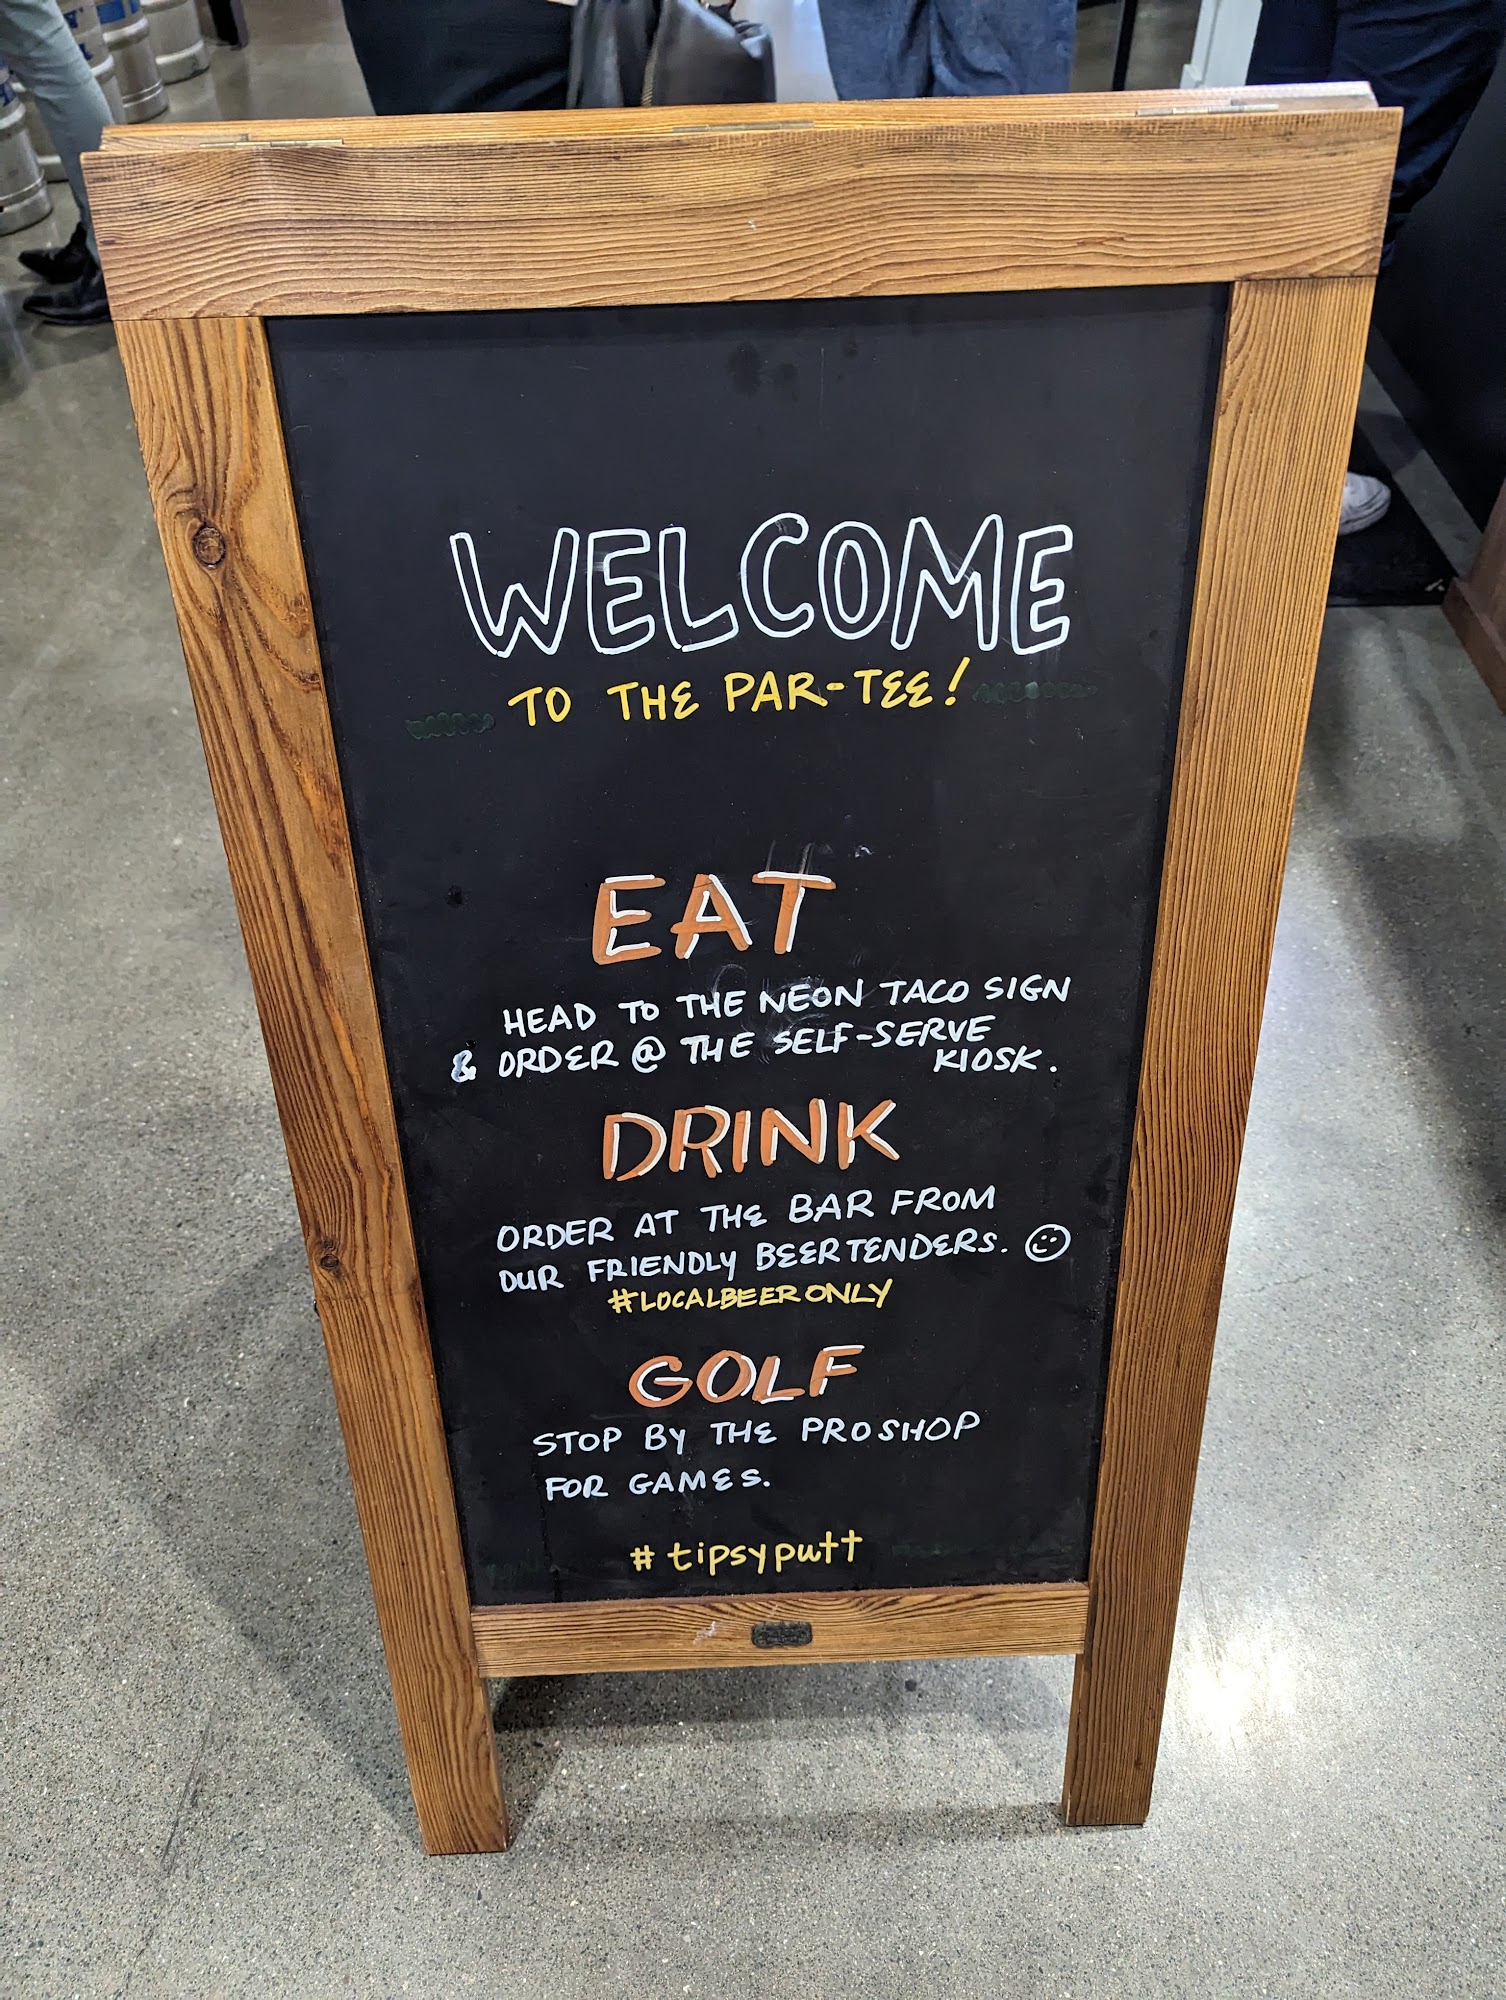 WELCOME
TO THE PAR-TEE!
EAT
HEAD TO THE NEON TACO SIGN
& ORDER @ THE SELF-SERVE
KIOSK.
DRINK
ORDER AT THE BAR FROM
OUR FRIENDLY BEERTENDERS. ☺
#LOCALBEERONLY
GOLF
STOP BY THE PRO SHOP
FOR GAMES.
#tipsyputt